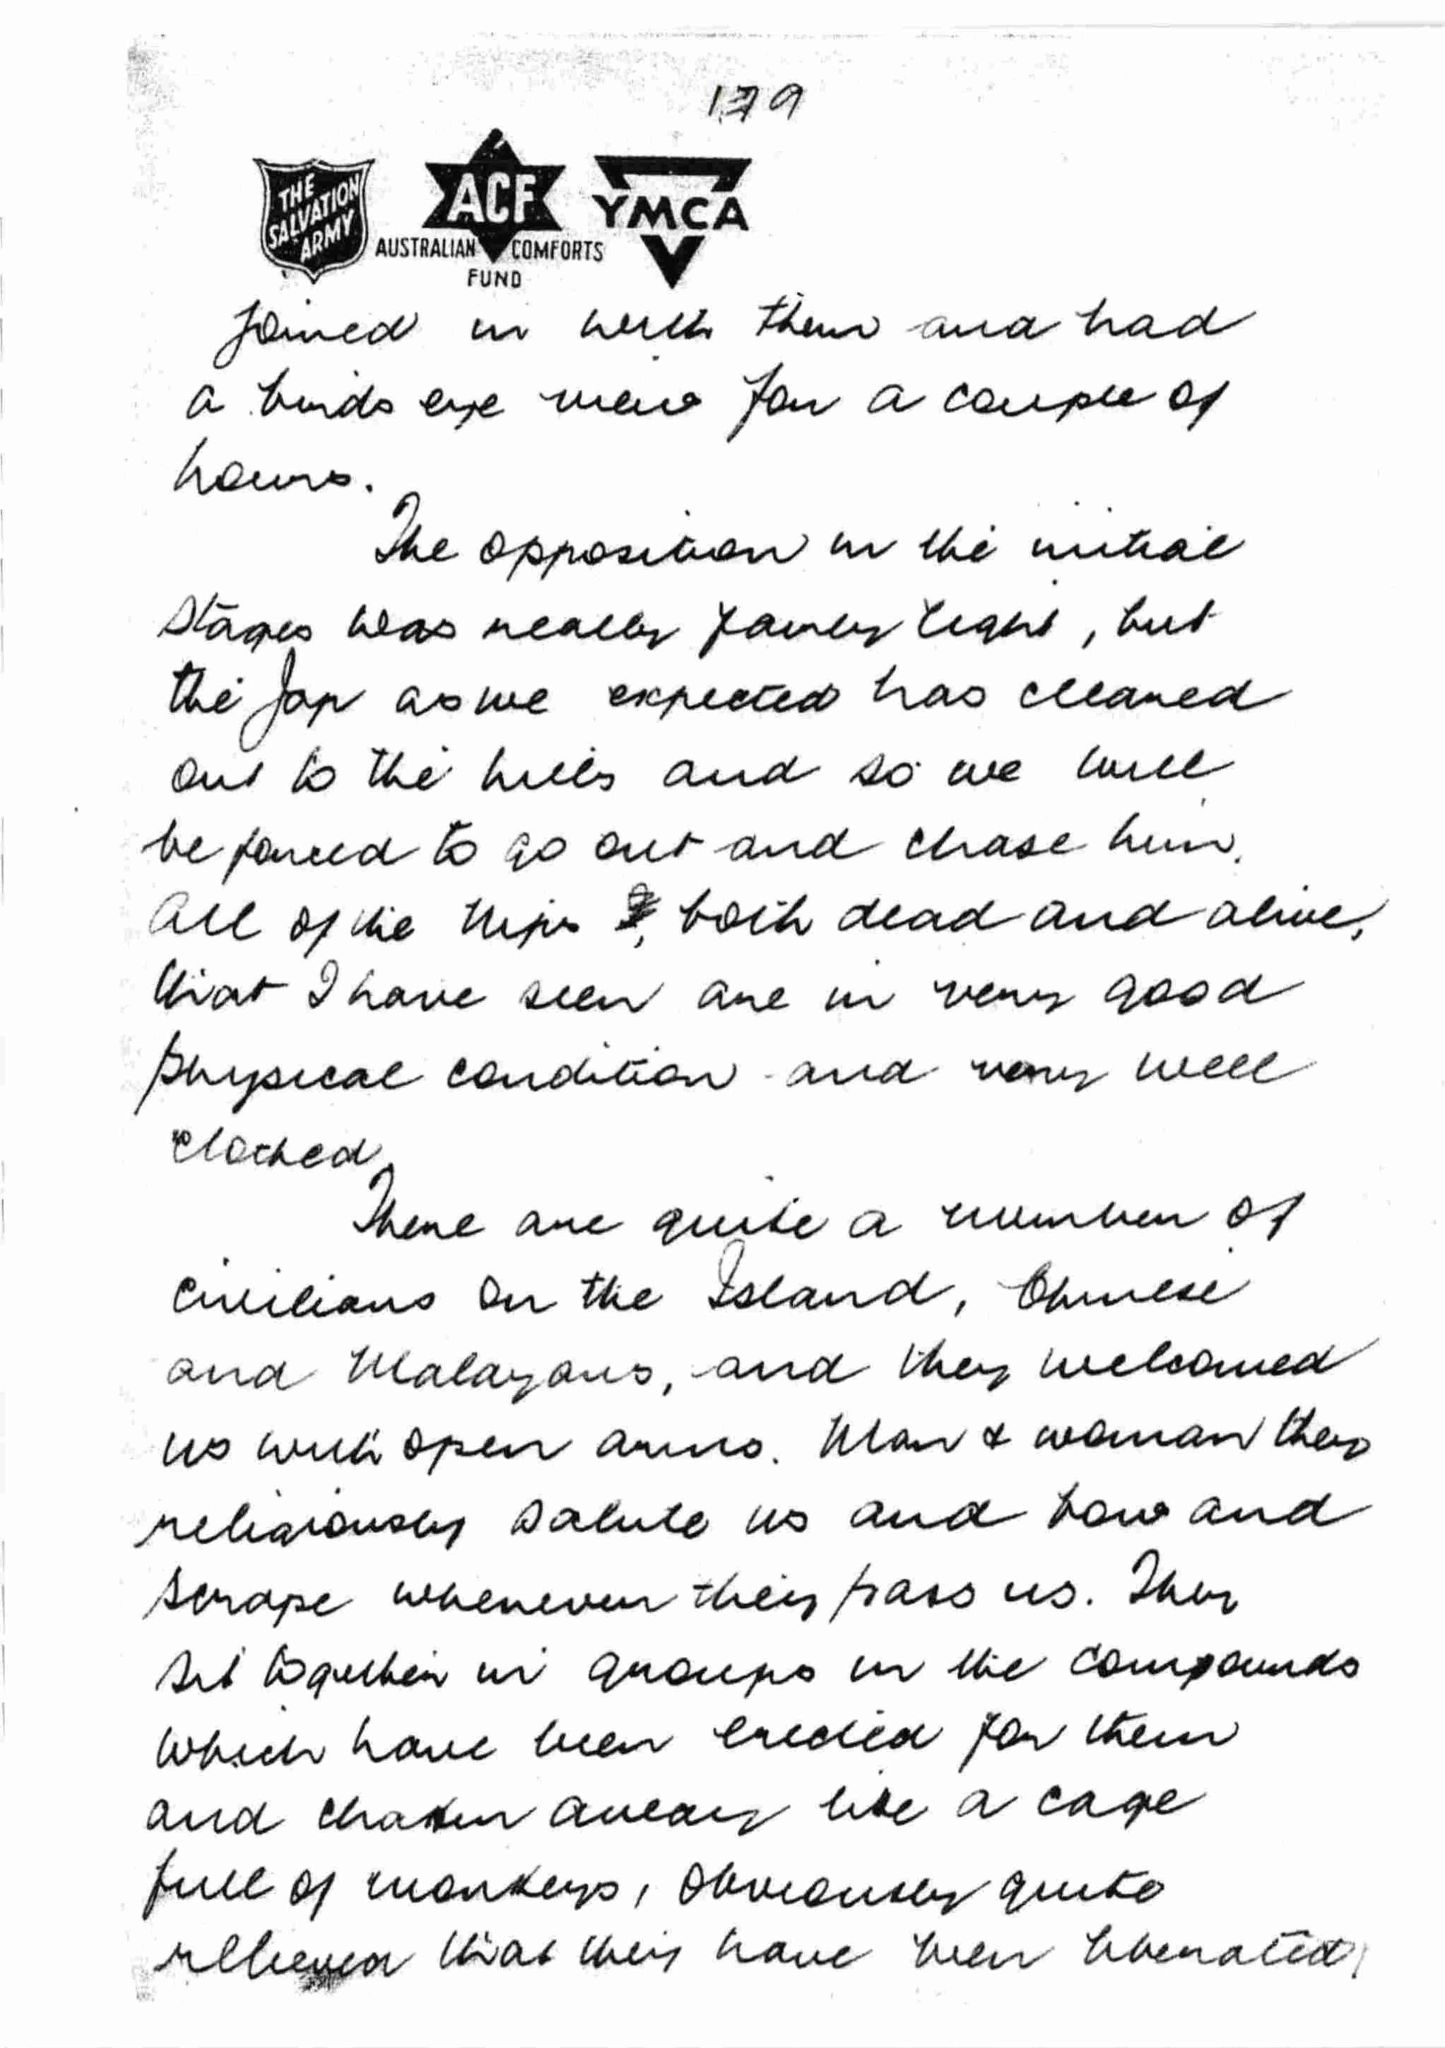 179
THE SALVATION ARMY
ACF
AUSTRALIAN COMFORTS FUND
YMCA
joined in with them and had
a birds eye view for a couple of
hours.
The opposition in the initial
stages was really fairly light, but
the Jap as we expected has cleared
out to the hills and so we will
be forced to go out and chase him.
All of the Nips, both dead and alive,
that I have seen are in very good
physical condition and very well
clothed.
There are quite a number of
civilians on the Island, Chinese
and Malayans, and they welcomed
us with open arms. Man & woman they
religiously salute us and bow and
scrape whenever they pass us. They
sit together in groups in the compounds
which have been erected for them
and chatter away like a cage
full of monkeys, obviously quite
relieved that they have been liberated,